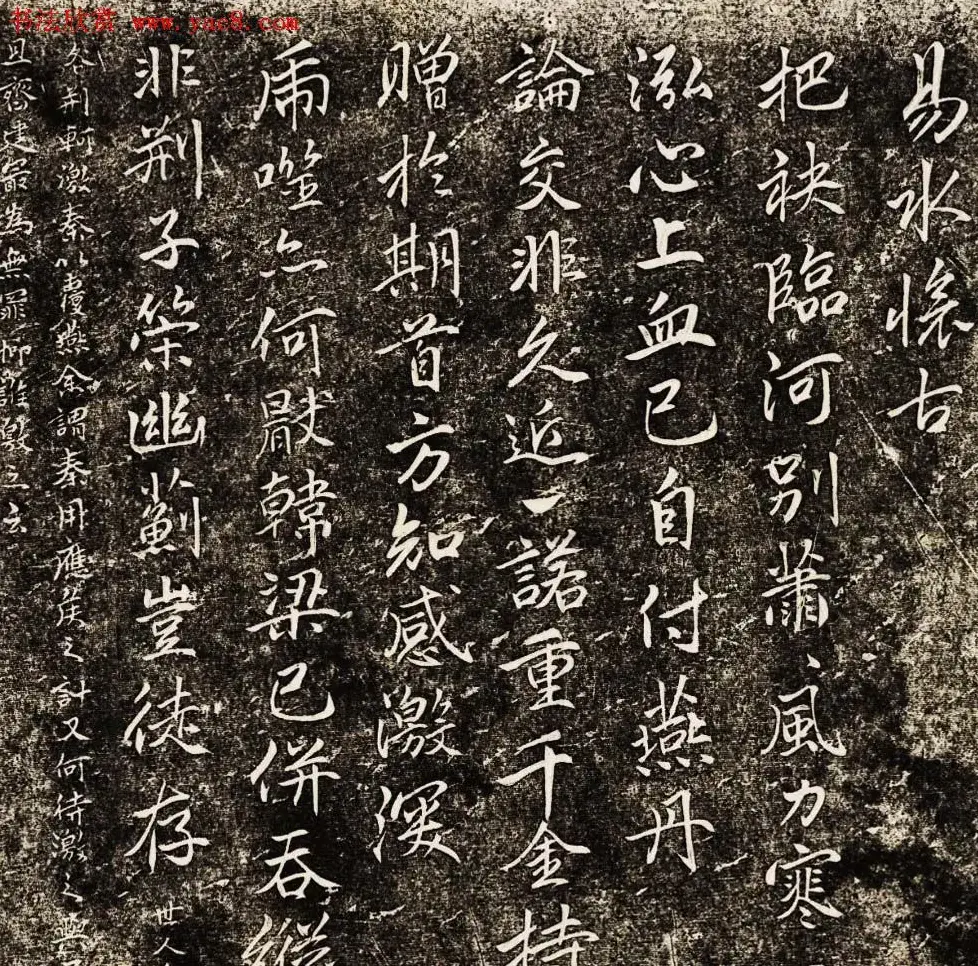 书法欣赏 www.yac8.com
易水懷古
把袂臨河別蕭〻風力寒一
泓心上血已自付燕丹
論交非久近一諾重千金持
贈於期首方知感激深
虎噬亦何厭韓梁已併吞縱
非荊子策幽薊豈徒存
世人
咎荊軻激秦以覆燕余謂秦用應侯之計又何待激之與
且齊建最為無罪抑誰激之玄